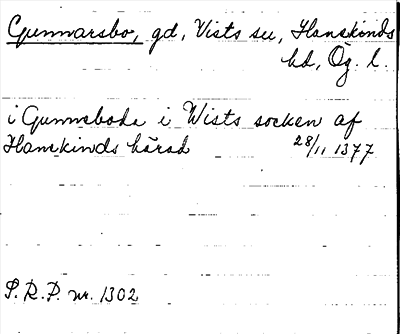 Gunnarsbo, gd, Vists sn, Hanekinds
hd, Ög. l.
i Gunneboda i Wists socken af
Hanekinds härad 28/11 1377
S.R.P. nr. 1302